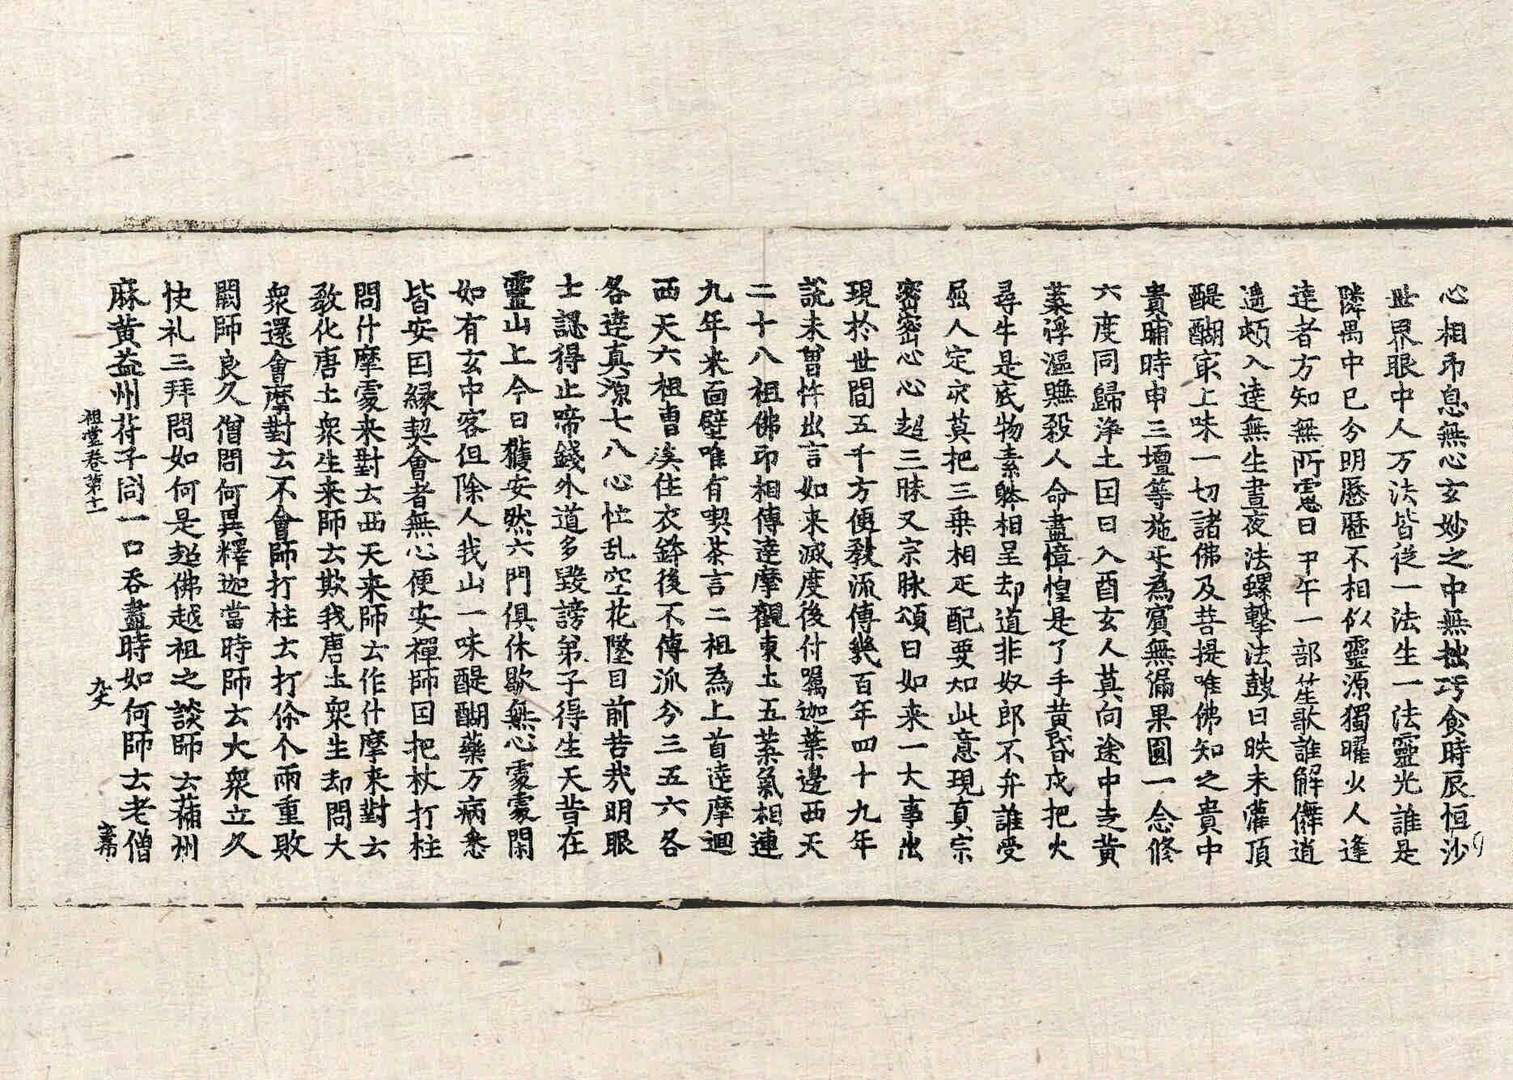 心相而息無心玄妙之中無拙巧食時辰恒沙
世界眼中人万法皆從一法生一法靈光誰是
隣禺中巳分明歷歷不相似靈源獨曜少人逢
達者方知無所慮日中午一部笙歌誰解儛逍
遙頓入達無生晝夜法螺擊法皷日昳未灌頂
醍醐冣上味一切諸佛及菩提唯佛知之貴中
貴晡時申三壇等施未為賓無漏果圓一念修
六度同歸淨土因日入酉玄人莫向途中走黄
葉浮漚賺殺人命盡憧惶是了手黄昏戌把火
尋牛是底物素躰相呈却道非奴郎不弁誰受
屈人定亥莫把三乗相疋配要知此意現真宗
密密心心超三昧又宗脉頌曰如来一大事出
現於世間五千方便敎流傳幾百年四十九年
說未曾忤出言如来滅度後付囑迦葉邊西天
二十八祖佛印相傳達摩觀東土五葉氣相連
九年来面壁唯有喫茶言二祖為上首達摩迴
西天六祖曹溪住衣鉢後不傳派分三五六各
各達真源七八心忙乱空花墜目前苦我明眼
士認得止啼錢外道多毁謗弟子得生天昔在
靈山上今日獲安然六門俱休歇無心處處閑
如有玄中客但除人我山一味醍醐藥万病悉
皆安因緣契會者無心便安禪師因把杖打柱
問什摩處来對云西天来師云作什摩来對云
敎化唐土衆生来師云欺我唐土衆生却問大
衆還會摩對云不會師打柱云打你个兩重敗
闕師良久僧問何異釋迦當時師云大衆立久
快礼三拜問如何是超佛越祖之談師云蒲州
麻黄益州苻子問一口吞盡時如何師云老僧
祖堂卷第十一